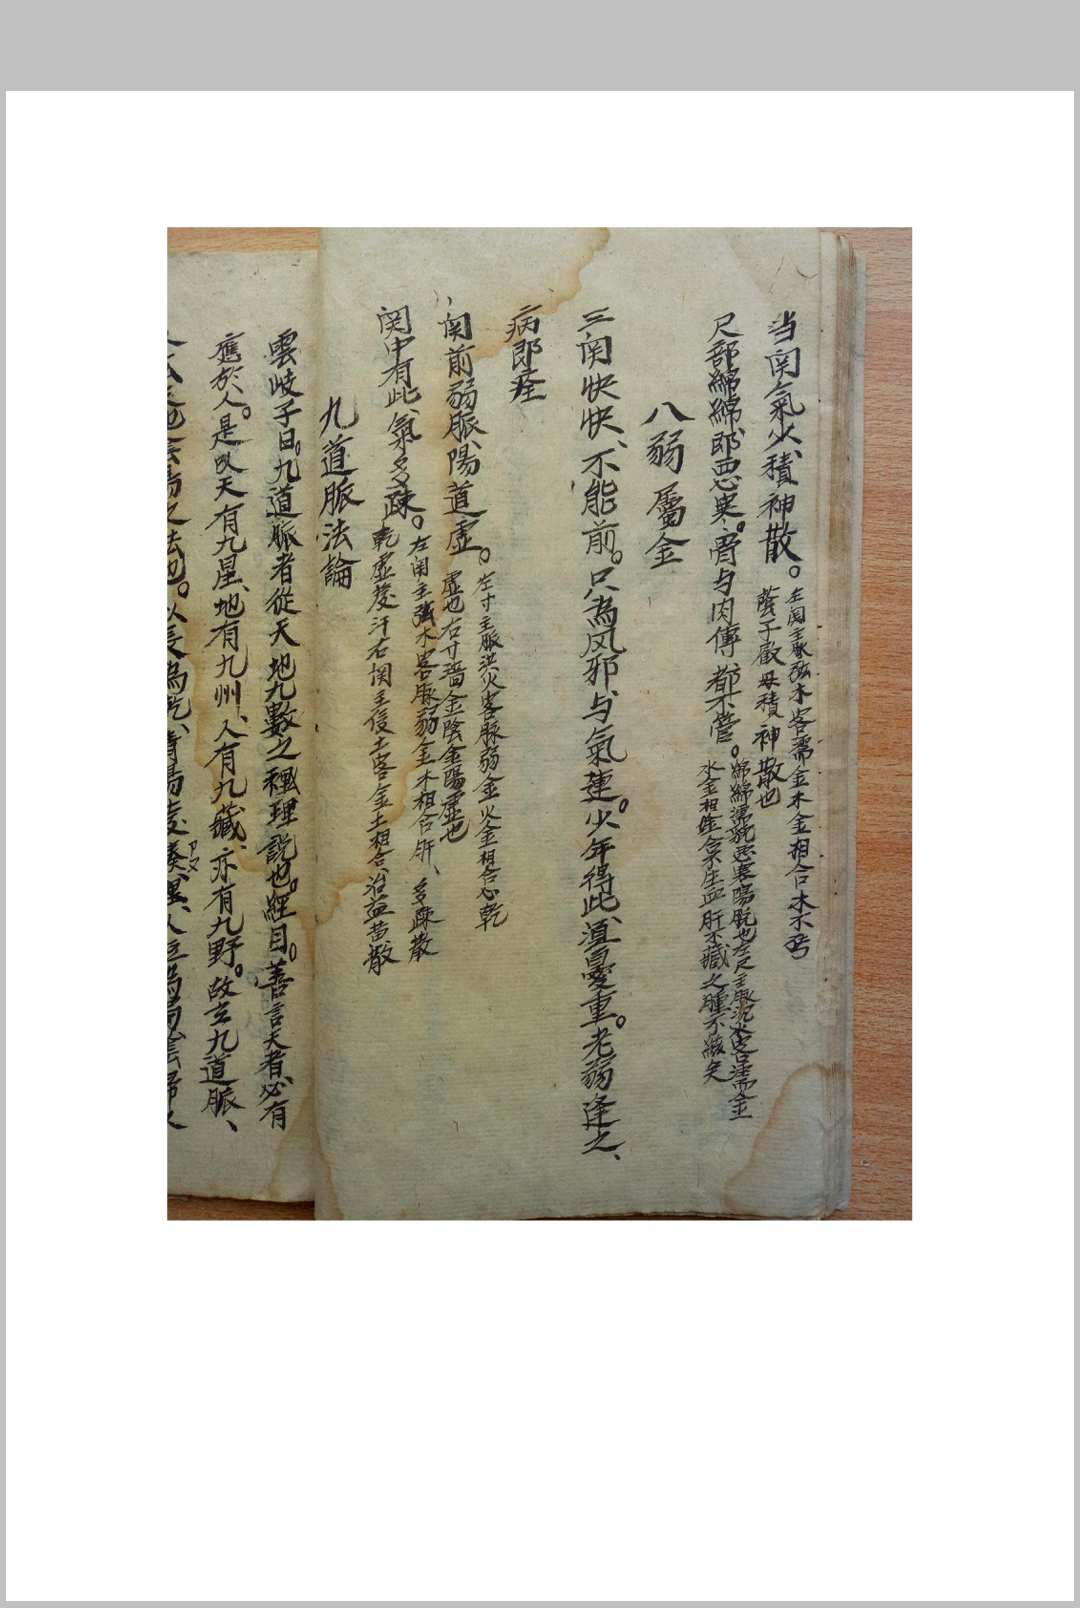 当関氣少、積神散。左関主脈弦木客濡金木金相合木不
蔭子䖏母積神散也
尺部綿綿、即悪寒。骨与肉傳、都不管。綿綿濡脱悪寒陽脱也左尺主脈沉水客濡金
水金相生金不生血肝不藏之腫不緩矣
八弱屬金
三関快快、不能前。只為风邪与氣連。少年得此、
憂重。老弱逢之、
病即痊
関前弱脈、陽道虛。左寸主脈洪火客脈弱金火金相合心乾
虛也右寸濇金陰金陽虛也
関中有此、氣多疎。左関主弦木客脉弱金木相合肝、多疎散
乾虛發汗右関主緩土客金土相合治益黄散
九道脈法論
雲岐子曰。九道脈者從天地九數之理說也。經曰。善言天者、必有
應於人。是以天有九星、地有九州、人有九藏、亦有九野。故立九道脈、
之法也。以長為乾、